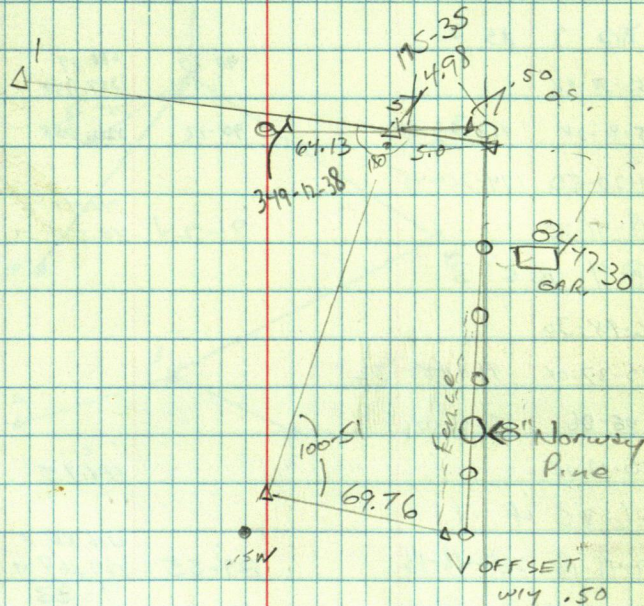 1
175-35
4.98
.50
O.S.
64.13
180°
5.0
349-12-38
84-47-30
GAR.
Fence
8" Norway
Pine
100-51
69.76
.15W
OFFSET
W'LY .50